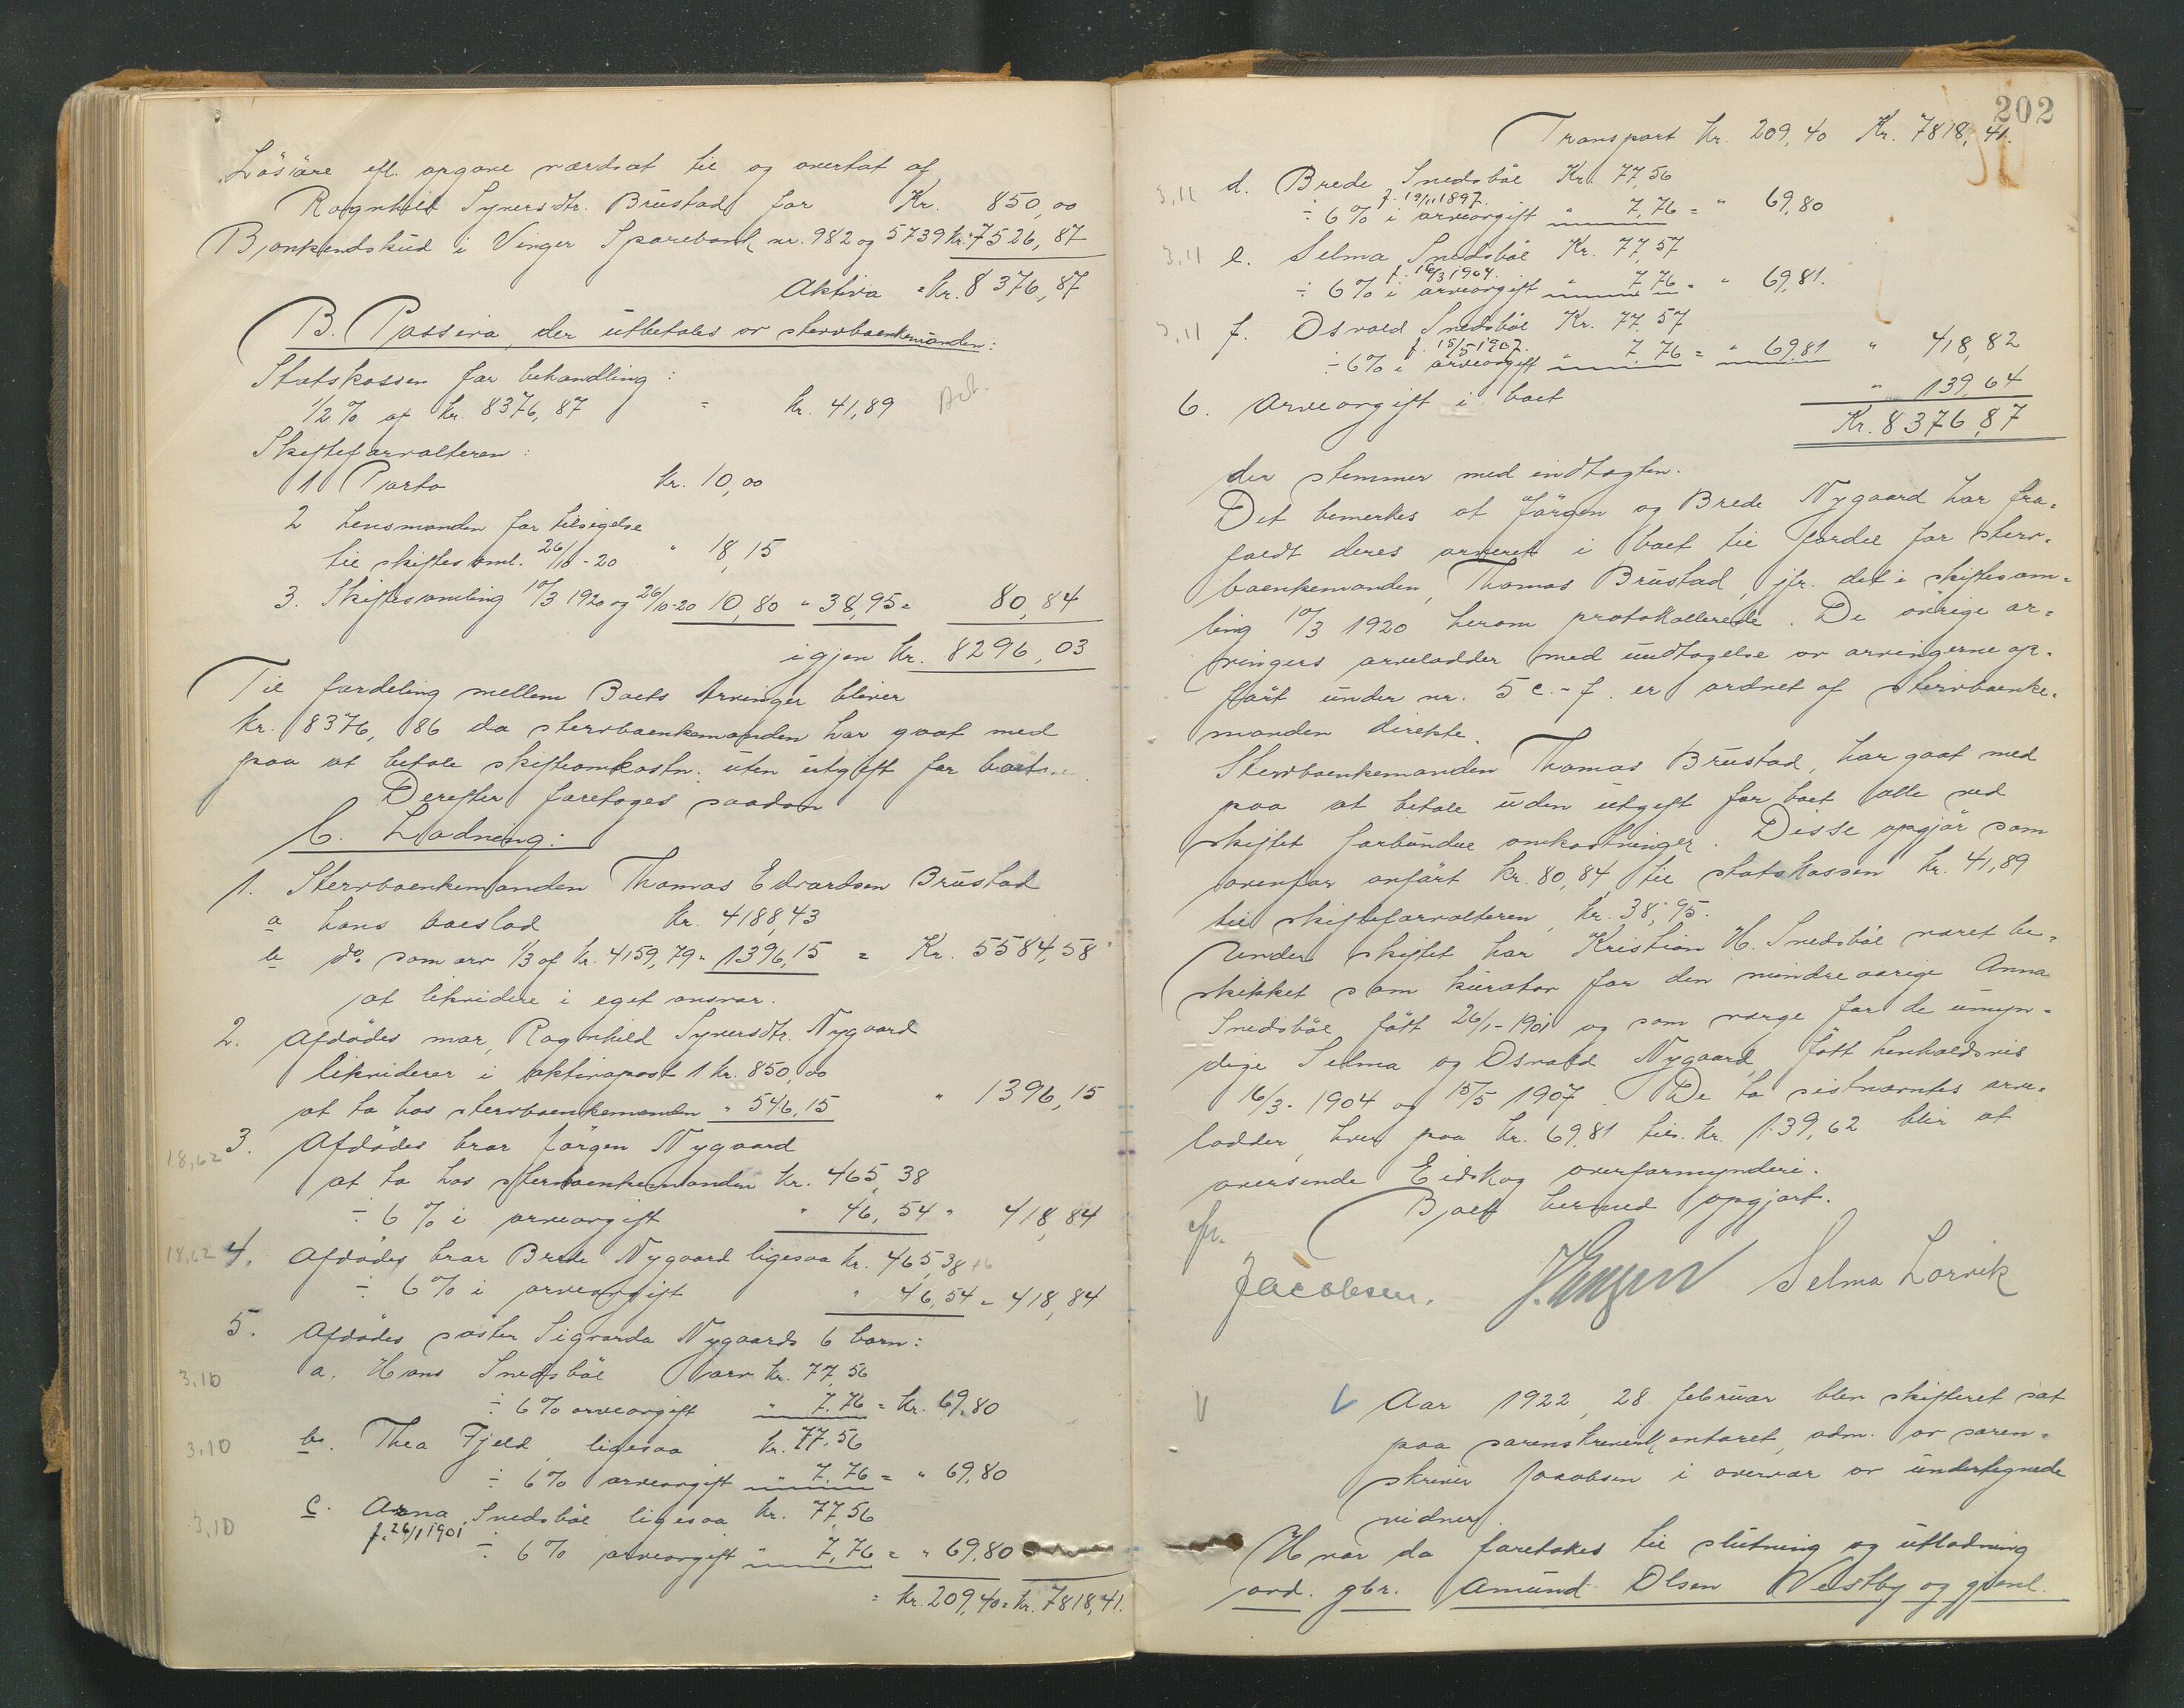 Løsøre efl. opgave værdsat til og overtat af
Ragnhild Syversdtr. Brustad for Kr. 850,00
Bankindskud i Vinger Sparebank nr. 982 og 5739 kr. 7526,87
Aktiva = Kr. 8376,87
B. Passiva, der utbetales av stervboenkemanden:
Statskassen for behandling:
1/2 % af kr. 8376,87 = kr. 41,89
Skifteforvalteren:
1 Porto kr. 10,00
2 Lensmanden for tilsigelse
til skiftesaml. 26/10-20 " 18,15
3. Skiftesamling 10/3 1920 og 26/10-20 10,80 " 38,95 = 80,84
igjen kr. 8296,03
Til fordeling mellem Boets Arvinger bliver
kr. 8376,86 da stervboenkemanden har gaat med
paa at betale skifteomkostn. uten utgift for boet
Derefter foretoges saadan
C. Lodning:
1. Stervboenkemanden Thomas Edvardsen Brustad
a hans boeslod kr. 4188,43
b do. som arv 1/3 af kr. 4159,79 " 1396,15 = Kr. 5584,58
at likvidere i eget ansvar.
2. Afdødes mor, Ragnhild Syversdtr. Nygaard
likviderer i aktivapost 1 kr. 850,00
at ta hos stervboenkemanden " 546,15 " 1396,15
18,62 3. Afdødes bror Jørgen Nygaard
at ta hos stervboenkemanden kr. 465,38
÷ 6 % i arveavgift " 46,54 " 418,84
18,62 4. Afdødes bror Brede Nygaard ligesaa kr. 465,38
÷ 6 % i arveavgift " 46,54 = 418,84
5. Afdødes søster Sigvarda Nygaards 6 barn:
3,10 a. Hans Snedsbøl arv kr. 77,56
÷ 6 % arveavgift " 7,76 = kr. 69,80
3,10 b. Thea Fjeld, ligesaa kr. 77,56
÷ 6 % arveavgift " 7,76 = " 69,80
3,10 c. Anna Snedsbøl ligesaa kr. 77,56
f. 26/1 1901
÷ 6 % arveavgift " 7,76 = " 69,80
= kr. 209,40 = kr. 7818,41.
202
Transport kr. 209,40 Kr. 7818,41.
3,11 d. Brede Snedsbøl Kr. 77,56
÷ 6 % i arveavgift " 7,76 = " 69,80
3,11 e. Selma Snedsbøl Kr. 77,57
f. 16/3 1904.
÷ 6 % i arveavgift " 7,76 = " 69,81.
3,11 f. Osvald Snedsbøl Kr. 77,57
f. 15/5 1907.
÷ 6 % i arveavgift " 7,76 = " 69,81 " 418,82
6. Arveavgift i boet " 139,64
Kr. 8376,87
der stemmer med indtægten.
Det bemerkes at Jørgen og Brede Nygaard har fra-
faldt deres arveret i boet til fordel for sterv-
boenkemanden, Thomas Brustad, jfr. det i skiftesam-
ling 10/3 1920 herom protokollerede. De øvrige ar-
vingers arvelodder med undtagelse av arvingerne op-
ført under nr. 5 c.-f. er ordnet af stervboenke-
manden direkte.
Stervboenkemanden Thomas Brustad, har gaat med
paa at betale uden utgift for boet alle ved
skiftet forbundne omkostninger. Disse utgjør som
ovenfor anført kr. 80,84, til statskassen kr. 41,89
til skifteforvalteren, kr. 38,95.
Under skiftet har Kristian H. Snedsbøl været be-
skikket som kurator for den mindreaarige Anna
Snedsbøl, født 26/1-1901 og som værge for de umyn-
dige Selma og Osvald Nygaard, født henholdsvis
16/3-1904 og 15/5 1907. De to sistnævntes arve-
lodder, hver paa kr. 69,81 tils. kr. 139,62 blir at
oversende Eidskog overformynderi.
Boet hermed opgjort.
Jacobsen. Selma Lorvik
Aar 1922, 28. februar blev skifteret sat
paa sorenskriverkontoret, adm. av soren-
skriver Jacobsen i overvær av undertegnede
vidner.
Hvor da foretokes til slutning og utlodning
avd. gbr. Amund Olsen Vestby og gjenl.